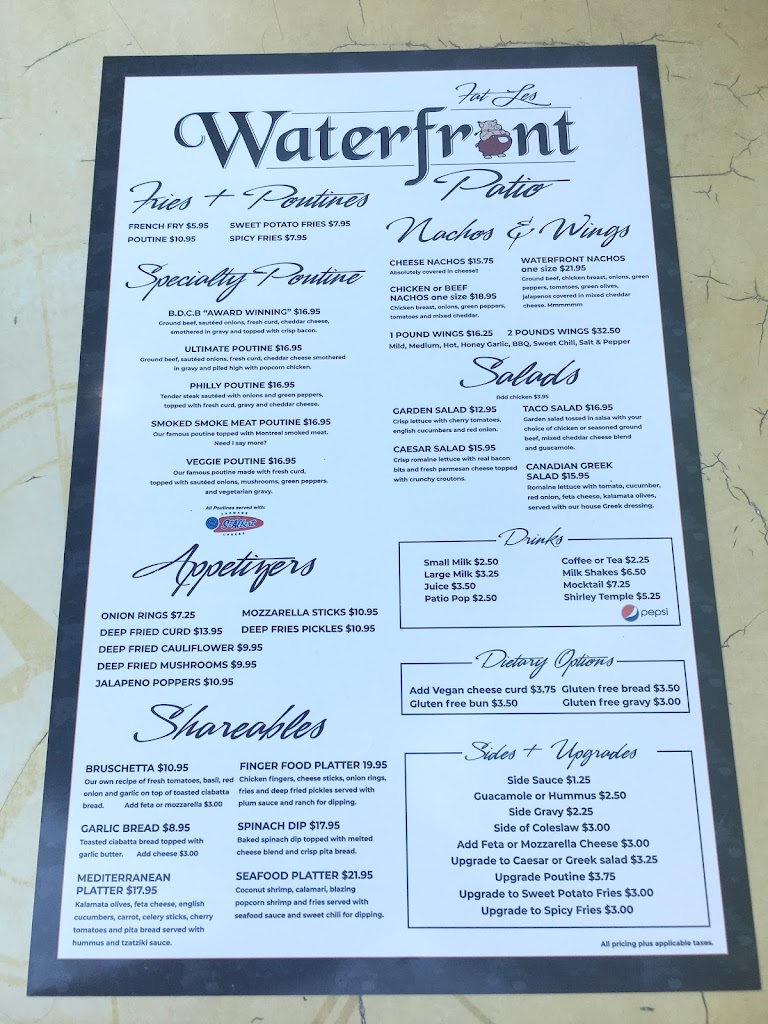 Fat Les
Waterfront
Patio
Fries + Poutines
FRENCH FRY $5.95 SWEET POTATO FRIES $7.95
POUTINE $10.95 SPICY FRIES $7.95
Specialty Poutine
B.D.C.B “AWARD WINNING” $16.95
Ground beef, sautéed onions, fresh curd, cheddar cheese,
smothered in gravy and topped with crisp bacon.
ULTIMATE POUTINE $16.95
Ground beef, sautéed onions, fresh curd, cheddar cheese smothered
in gravy and piled high with popcorn chicken.
PHILLY POUTINE $16.95
Tender steak sautéed with onions and green peppers,
topped with fresh curd, gravy and cheddar cheese.
SMOKED SMOKE MEAT POUTINE $16.95
Our famous poutine topped with Montreal smoked meat.
Need I say more?
VEGGIE POUTINE $16.95
Our famous poutine made with fresh curd,
topped with sautéed onions, mushrooms, green peppers.
and vegetarian gravy.
All Poutines served with:
St-Albert
Appetizers
ONION RINGS $7.25 MOZZARELLA STICKS $10.95
DEEP FRIED CURD $13.95 DEEP FRIES PICKLES $10.95
DEEP FRIED CAULIFLOWER $9.95
DEEP FRIED MUSHROOMS $9.95
JALAPENO POPPERS $10.95
Shareables
BRUSCHETTA $10.95
Our own recipe of fresh tomatoes, basil, red
onion and garlic on top of toasted ciabatta
bread. Add feta or mozzarella $3.00
GARLIC BREAD $8.95
Toasted ciabatta bread topped with
garlic butter. Add cheese $3.00
MEDITERRANEAN
PLATTER $17.95
Kalamata olives, feta cheese, english
cucumbers, carrot, celery sticks, cherry
tomatoes and pita bread served with
hummus and tzatziki sauce.
FINGER FOOD PLATTER 19.95
Chicken fingers, cheese sticks, onion rings,
fries and deep fried pickles served with
plum sauce and ranch for dipping.
SPINACH DIP $17.95
Baked spinach dip topped with melted
cheese blend and crisp pita bread.
SEAFOOD PLATTER $21.95
Coconut shrimp, calamari, blazing
popcorn shrimp and fries served with
seafood sauce and sweet chili for dipping.
Nachos & Wings
CHEESE NACHOS $15.75
Absolutely covered in cheese!!
CHICKEN or BEEF
NACHOS one size $18.95
Chicken breast, onions, green peppers,
tomatoes and mixed cheddar.
WATERFRONT NACHOS
one size $21.95
Ground beef, chicken breast, onions, green
peppers, tomatoes, green olives,
jalapenos covered in mixed cheddar
cheese. Mmmmmm
1 POUND WINGS $16.25 2 POUNDS WINGS $32.50
Mild, Medium, Hot, Honey Garlic, BBQ, Sweet Chili, Salt & Pepper
Salads
Add chicken $3.95
GARDEN SALAD $12.95
Crisp lettuce with cherry tomatoes,
english cucumbers and red onion.
CAESAR SALAD $15.95
Crisp romaine lettuce with real bacon
bits and fresh parmesan cheese topped
with crunchy croutons.
TACO SALAD $16.95
Garden salad tossed in salsa with your
choice of chicken or seasoned ground
beef, mixed cheddar cheese blend
and guacamole.
CANADIAN GREEK
SALAD $15.95
Romaine lettuce with tomato, cucumber,
red onion, feta cheese, kalamata olives,
served with our house Greek dressing.
Drinks
Small Milk $2.50 Coffee or Tea $2.25
Large Milk $3.25 Milk Shakes $6.50
Juice $3.50 Mocktail $7.25
Patio Pop $2.50 Shirley Temple $5.25
pepsi
Dietary Options
Add Vegan cheese curd $3.75 Gluten free bread $3.50
Gluten free bun $3.50 Gluten free gravy $3.00
Sides + Upgrades
Side Sauce $1.25
Guacamole or Hummus $2.50
Side Gravy $2.25
Side of Coleslaw $3.00
Add Feta or Mozzarella Cheese $3.00
Upgrade to Caesar or Greek salad $3.25
Upgrade Poutine $3.75
Upgrade to Sweet Potato Fries $3.00
Upgrade to Spicy Fries $3.00
All pricing plus applicable taxes.